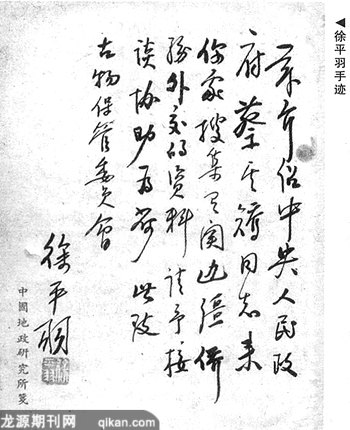 ◀徐平羽手迹
兹介绍中央人民政
府蔡同志来
你家搜集有関边疆侨
務外交的资料 请予接
谈协助为荷 此致
古物保管委员会
徐平羽
中國地政研究所箋
龙源期刊网
qikan.com